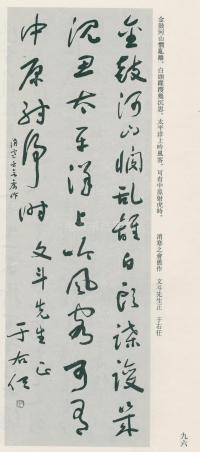 金鼓河山憫亂離,白頭蹀躞幾沉思,太平洋上吟風客,可有中原射虎時。 消寒之會舊作 文斗先生正 于右任
金鼓河山憫乱離白頭蹀躞幾
沈思太平洋上吟風客可有
中原射虎時 文斗先生正
消寒之會舊作
于右任
九六